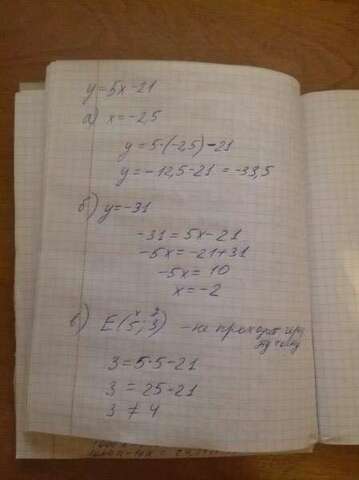 y=5x-21
а) x=-2,5
y=5·(-2,5)-21
y=-12,5-21=-33,5
б) y=-31
-31=5x-21
-5x=-21+31
-5x=10
x=-2
в) E(5;3) -не проходит через эту точку
3=5·5-21
3=25-21
3≠4